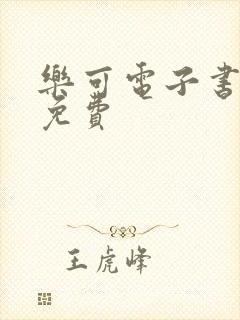 樂可電子書
免費
王虎峰